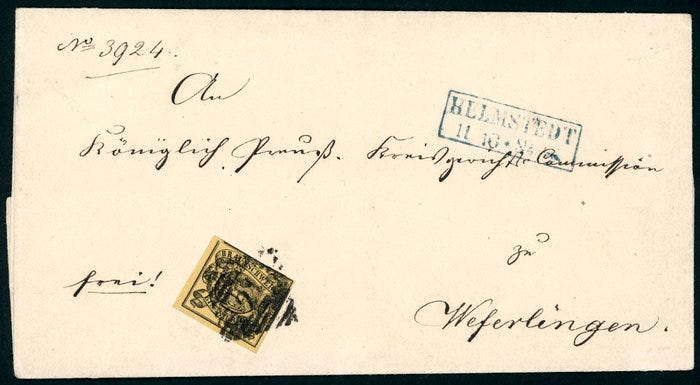 No 3924.
An
HELMSTEDT
11 10 •
Königlich Preuß. Kreisgerichts Commission
zu
frei!
BRAUNSCHWEIG
Weferlingen.